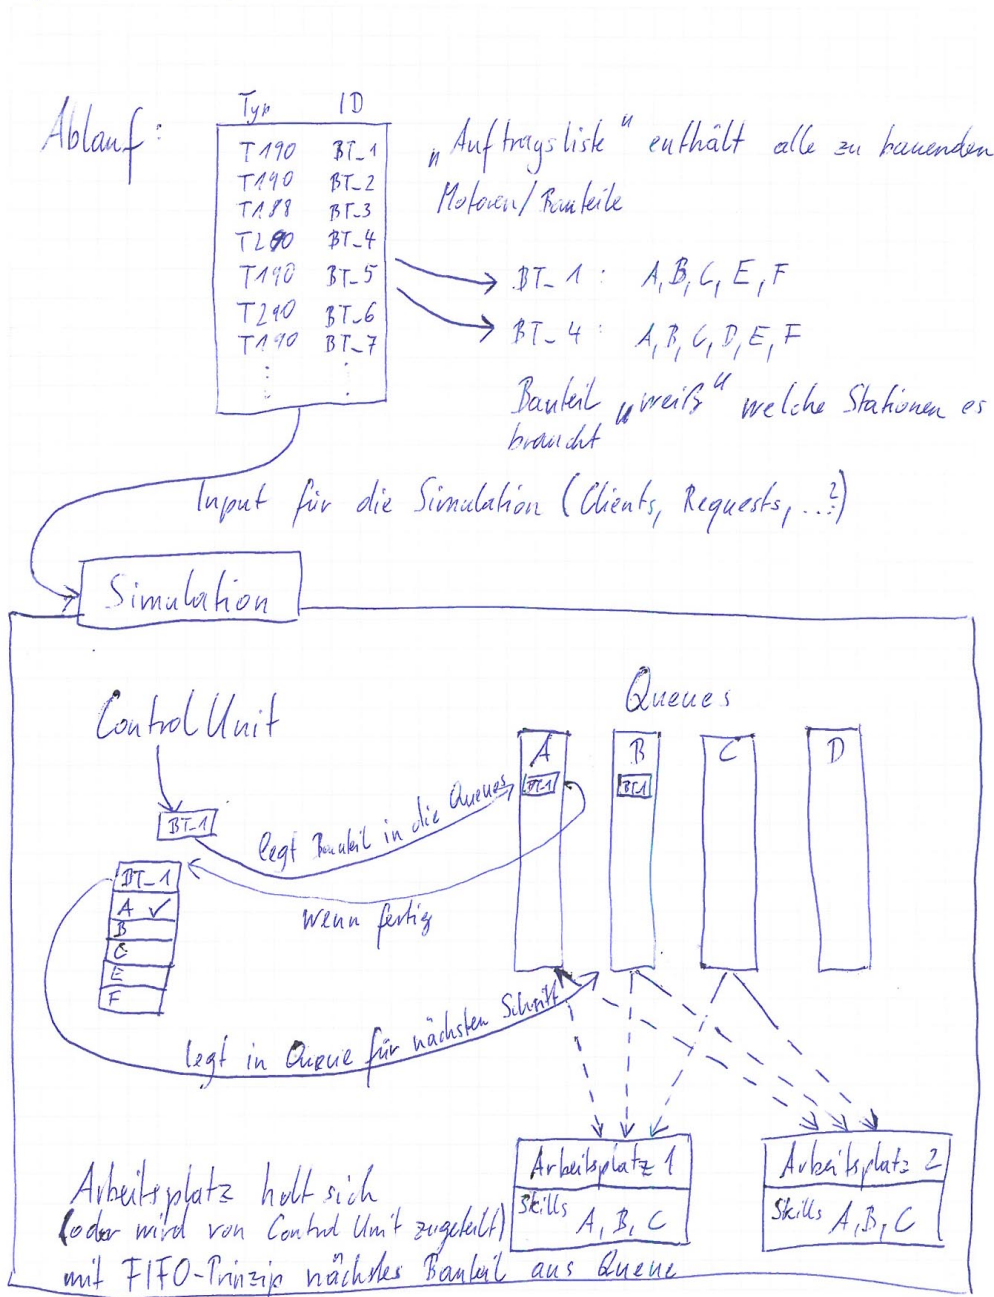 Ablauf:
Typ ID
T190 BT_1
T190 BT_2
T188 BT_3
BT_4
T190 BT_5
T290 BT_6
T190 BT_7
„Auftragsliste“ enthält alle zu bauenden
Motoren/Bauteile
BT_1: A, B, C, E, F
BT_4: A, B, C, D, E, F
Bauteil „weiß“ welche Stationen es
braucht
Input für die Simulation (Clients, Requests, ...?)
Simulation
Control Unit
Queues
A B C D
BT_1 BT_1
BT_1
legt Bauteil in die Queues
wenn fertig
BT_1
A ✓
B
C
E
F
legt in Queue für nächsten Schritt
Arbeitsplatz 1
Skills A, B, C
Arbeitsplatz 2
Skills A, B, C
Arbeitsplatz holt sich
(oder wird von Control Unit zugeteilt)
mit FIFO-Prinzip nächstes Bauteil aus Queue